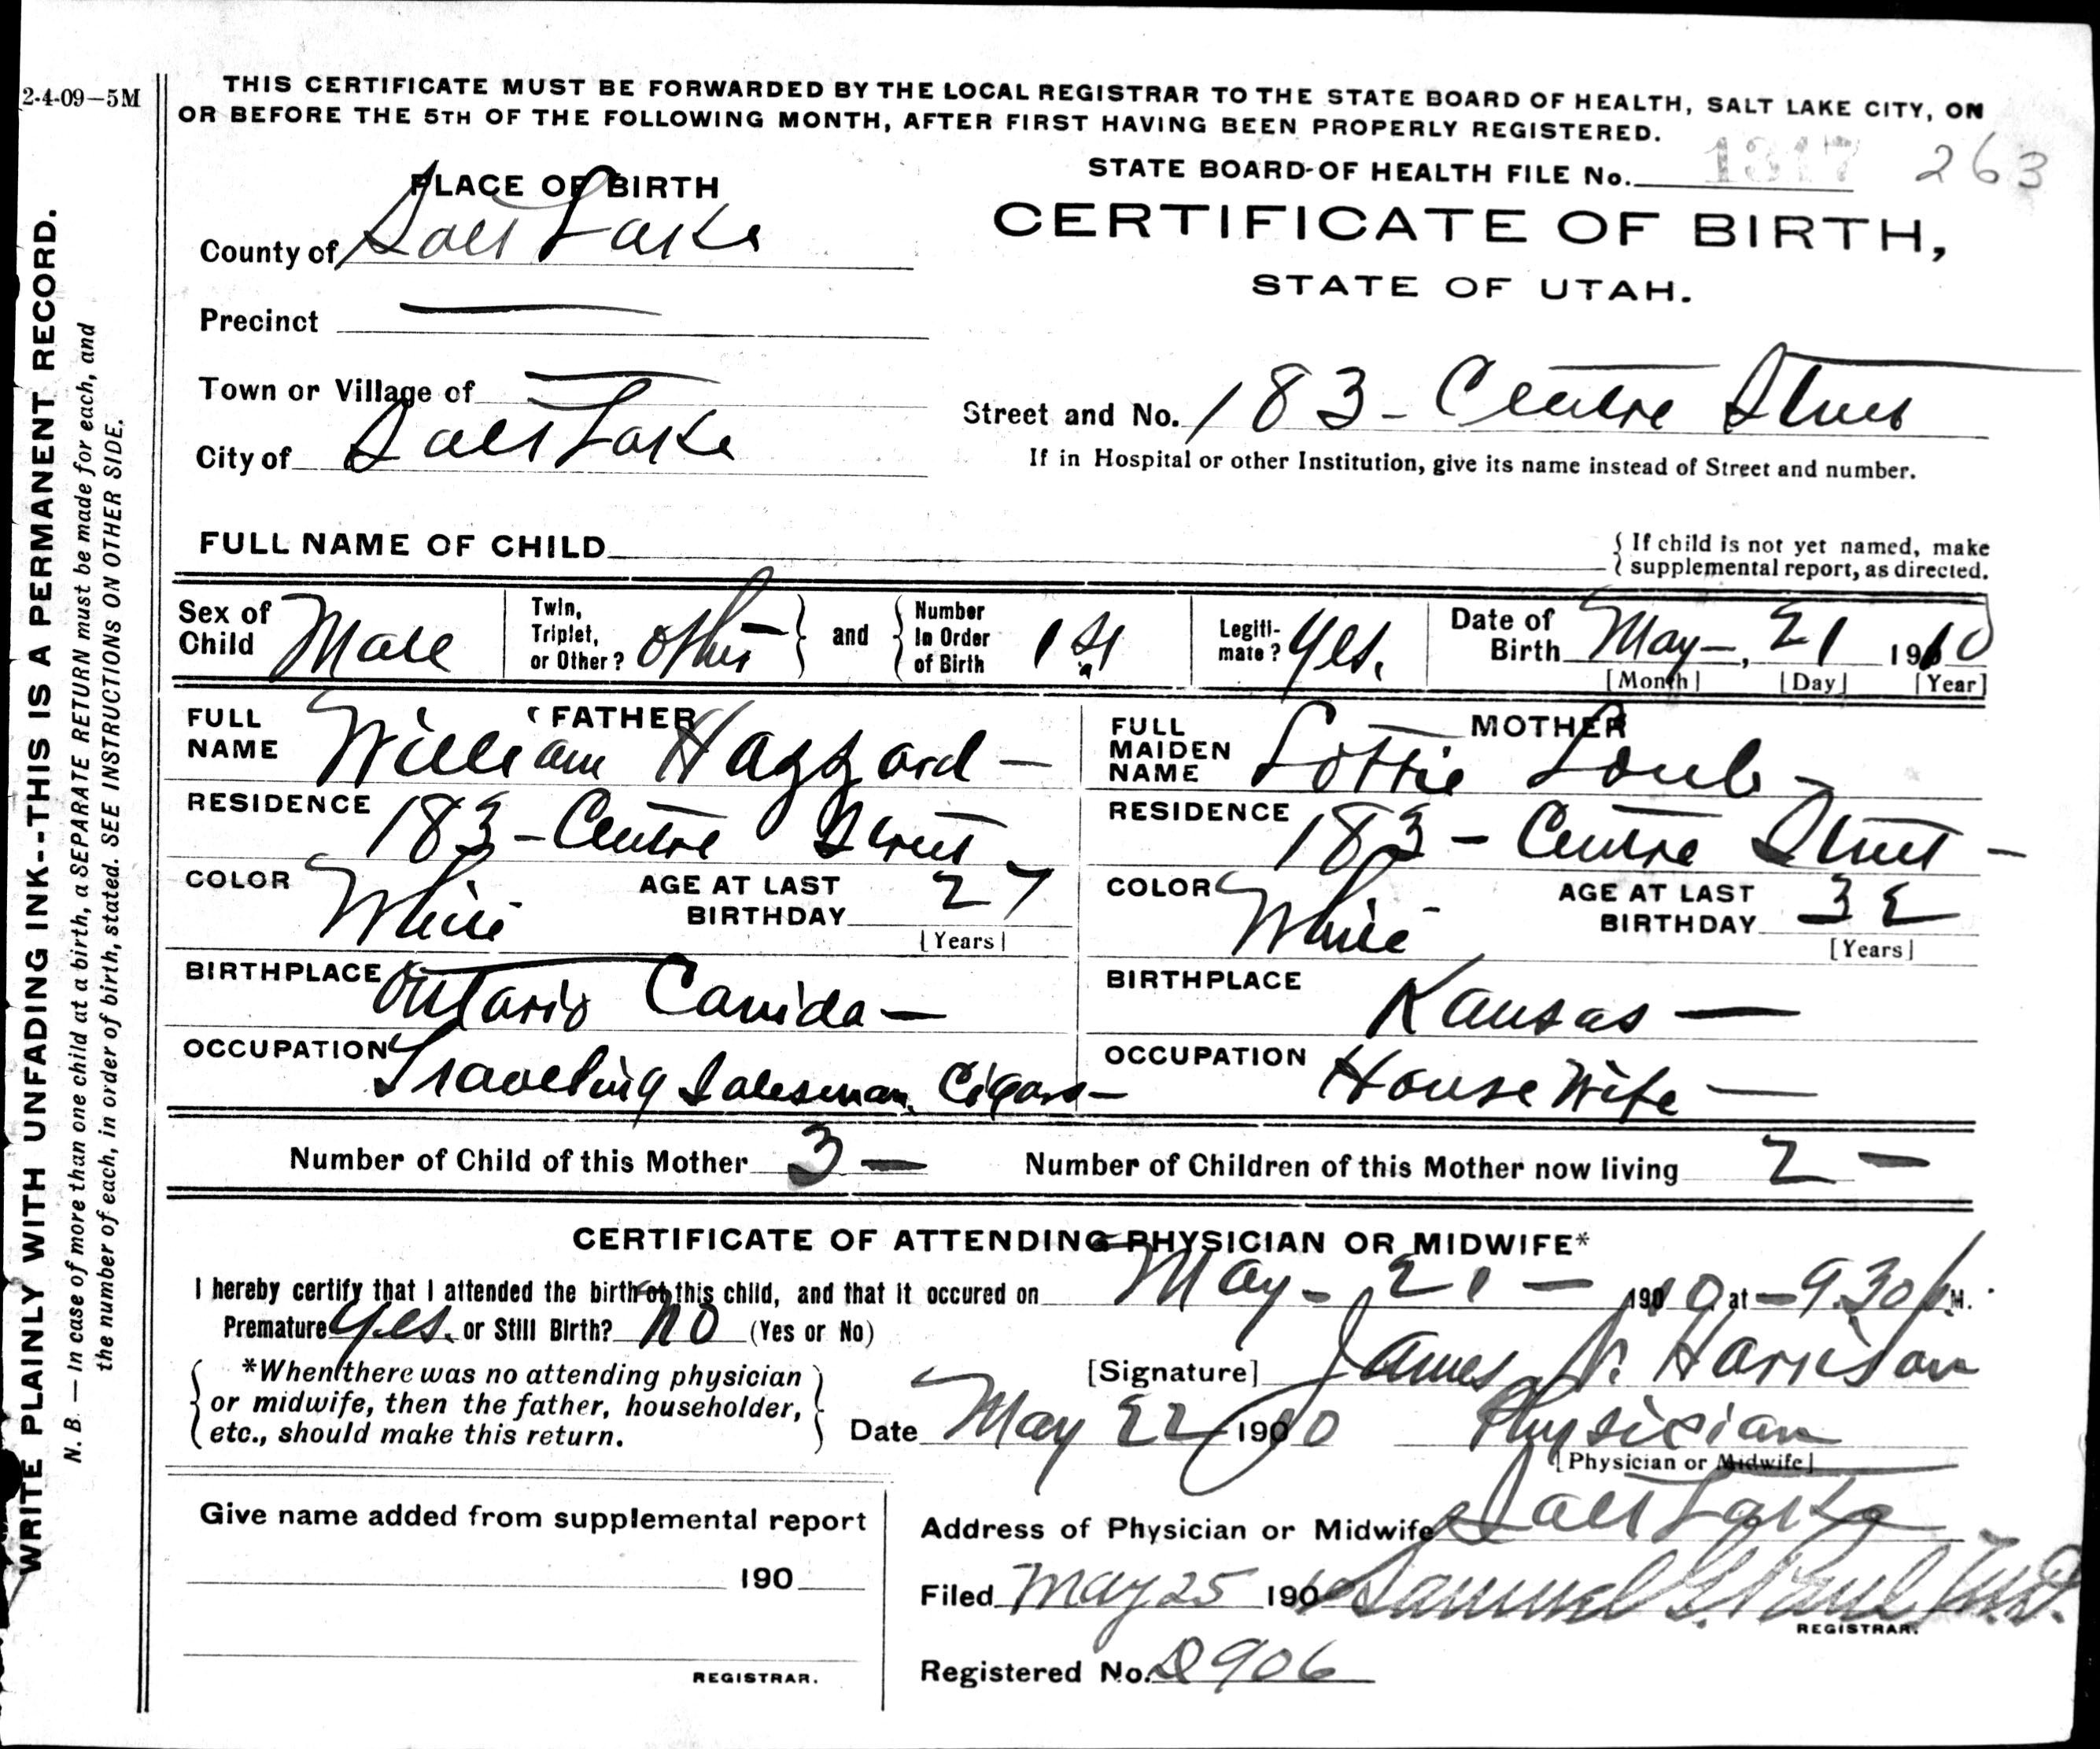 2-4-09—5M
THIS CERTIFICATE MUST BE FORWARDED BY THE LOCAL REGISTRAR TO THE STATE BOARD OF HEALTH, SALT LAKE CITY, ON
OR BEFORE THE 5TH OF THE FOLLOWING MONTH, AFTER FIRST HAVING BEEN PROPERLY REGISTERED.
WRITE PLAINLY WITH UNFADING INK--THIS IS A PERMANENT RECORD.
N. B. — In case of more than one child at a birth, a SEPARATE RETURN must be made for each, and
the number of each, in order of birth, stated. SEE INSTRUCTIONS ON OTHER SIDE.
STATE BOARD OF HEALTH FILE No. 1317 263
CERTIFICATE OF BIRTH,
STATE OF UTAH.
PLACE OF BIRTH
County of Salt Lake
Precinct —
Town or Village of —
City of Salt Lake
Street and No. 183 - Centre Street
If in Hospital or other Institution, give its name instead of Street and number.
FULL NAME OF CHILD
{ If child is not yet named, make
supplemental report, as directed.
Sex of Child Male
Twin, Triplet, or Other? other } and { Number In Order of Birth 1st
Legiti-mate? Yes.
Date of Birth May —, 21 1910
[Month] [Day] [Year]
FATHER
FULL NAME William Haggard —
RESIDENCE 183 - Centre Street
COLOR White
AGE AT LAST BIRTHDAY 27
[Years]
BIRTHPLACE Ontario Canida —
OCCUPATION Traveling Salesman, Cigars —
MOTHER
FULL MAIDEN NAME Lottie
RESIDENCE 183 - Centre Street —
COLOR White -
AGE AT LAST BIRTHDAY 32
[Years]
BIRTHPLACE Kansas —
OCCUPATION House Wife —
Number of Child of this Mother 3 — Number of Children of this Mother now living 2 —
CERTIFICATE OF ATTENDING PHYSICIAN OR MIDWIFE*
I hereby certify that I attended the birth of this child, and that it occured on May - 21 - 1910 at — 9.30 P M.
Premature Yes. or Still Birth? No (Yes or No)
{ *When there was no attending physician
or midwife, then the father, householder,
etc., should make this return. }
[Signature] James N. Harrison
Date May 22 1910 Physician
[Physician or Midwife]
Give name added from supplemental report
190
REGISTRAR.
Address of Physician or Midwife Salt Lake
Filed May 25 190 Samuel G. Paul M.D.
REGISTRAR.
Registered No. D906